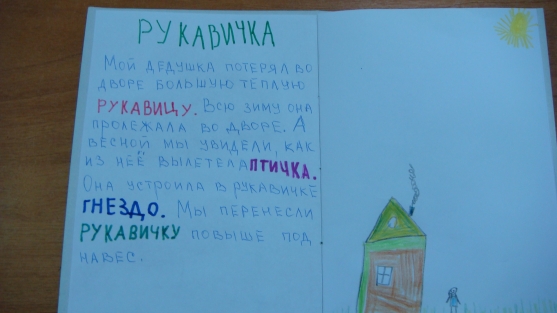 РУКАВИЧКА
МОЙ ДЕДУШКА ПОТЕРЯЛ ВО
ДВОРЕ БОЛЬШУЮ ТЁПЛУЮ
РУКАВИЦУ. ВСЮ ЗИМУ ОНА
ПРОЛЕЖАЛА ВО ДВОРЕ. А
ВЕСНОЙ МЫ УВИДЕЛИ, КАК
ИЗ НЕЁ ВЫЛЕТЕЛА ПТИЧКА.
ОНА УСТРОИЛА В РУКАВИЧКЕ
ГНЕЗДО. МЫ ПЕРЕНЕСЛИ
РУКАВИЧКУ ПОВЫШЕ ПОД
НАВЕС.